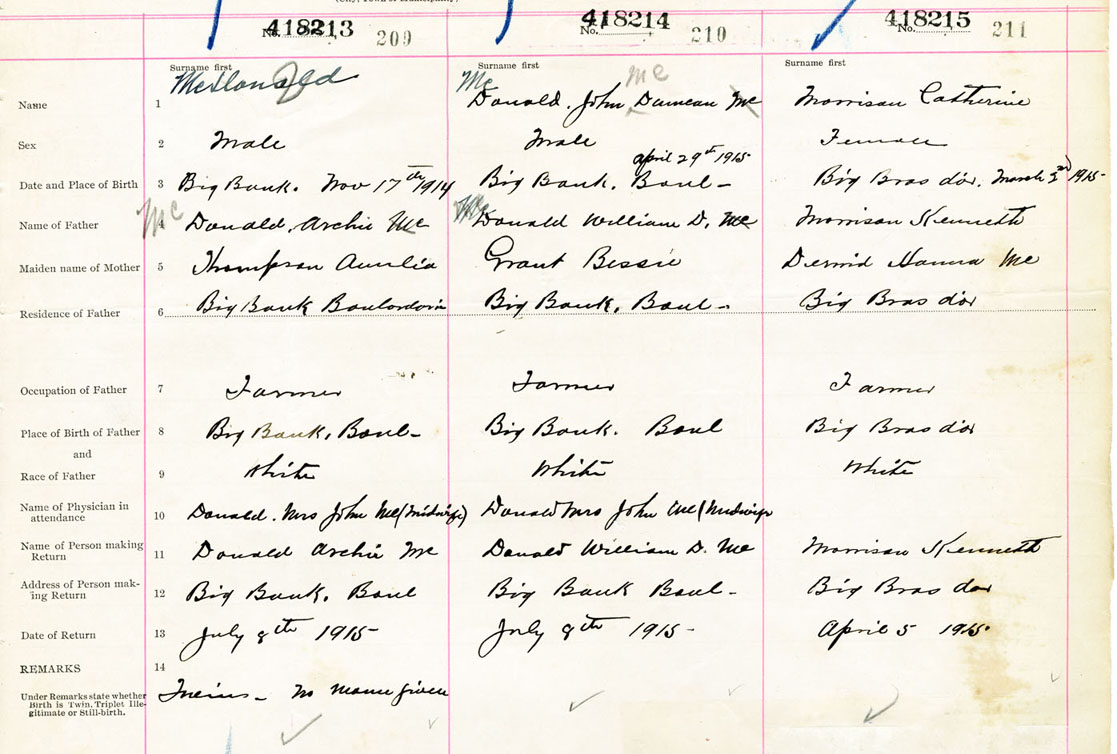 No. 418213 209 No. 418214 210 No. 418215 211
Surname first Surname first Surname first
Name 1 McDonald Mc Donald, John Duncan Mc Mc Morrison Catherine
Sex 2 Male Male Female
Date and Place of Birth 3 Big Bank. Nov 17th 1914 Big Bank, Boul- april 29th 1915 Big Bras d'or, March 1915
Name of Father 4 Mc Donald, Archie Mc Mc Donald William D. Mc Morrison Kenneth
Maiden name of Mother 5 Thompson Grant Bessie Dermid Hanna Mc
Residence of Father 6 Big Bank Boulardarie Big Bank, Boul- Big Bras d'or
Occupation of Father 7 Farmer Farmer Farmer
Place of Birth of Father 8 Big Bank, Boul- Big Bank. Boul Big Bras d'or
and
Race of Father 9 White White White
Name of Physician in attendance 10 Donald. Mrs John Mc (Midwife) Donald Mrs John Mc (Midwife
Name of Person making Return 11 Donald Archie Mc Donald William D. Mc Morrison Kenneth
Address of Person mak-ing Return 12 Big Bank, Boul Big Bank Boul- Big Bras dor
Date of Return 13 July 8th 1915 July 8th 1915 April 5 1915
REMARKS 14
Under Remarks state whether Birth is Twin, Triplet Ille-gitimate or Still-birth. no name given